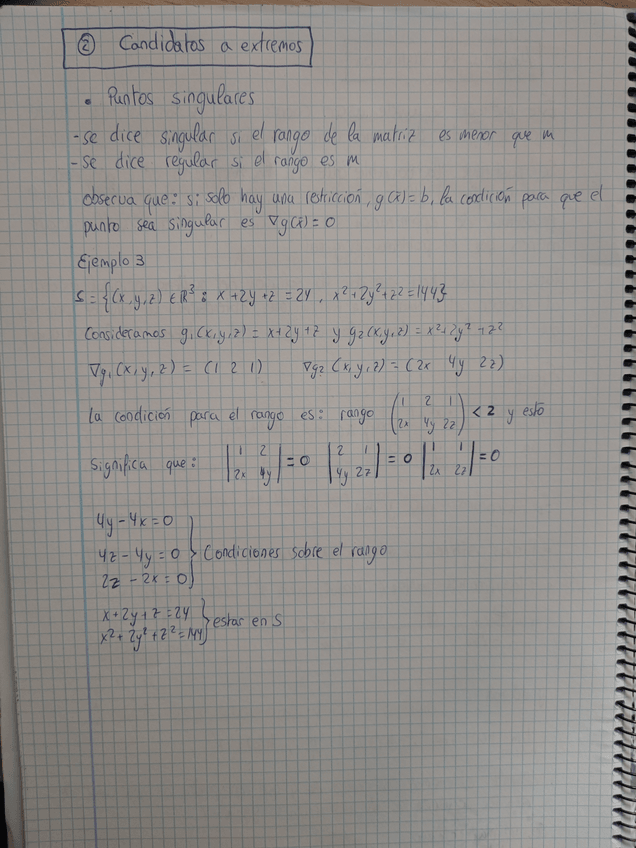 ② Candidatos a extremos
• Puntos singulares
- se dice singular si el rango de la matriz es menor que m
- se dice regular si el rango es m
observa que: si solo hay una restricción, g(x̄) = b, la condición para que el
punto sea singular es ∇g(x̄) = 0
Ejemplo 3
S = {(x,y,z) ∈ ℝ³ : x + 2y + z = 24, x² + 2y² + z² = 144}
Consideramos g₁(x,y,z) = x + 2y + z y g₂(x,y,z) = x² + 2y² + z²
∇g₁(x,y,z) = (1 2 1) ∇g₂(x,y,z) = (2x 4y 2z)
la condición para el rango es: rango (1 2 1 / 2x 4y 2z) < 2 y esto
significa que: |1 2 / 2x 4y| = 0 |2 1 / 4y 2z| = 0 |1 1 / 2x 2z| = 0
4y - 4x = 0
4z - 4y = 0 } Condiciones sobre el rango
2z - 2x = 0
x + 2y + z = 24
x² + 2y² + z² = 144 } estar en S